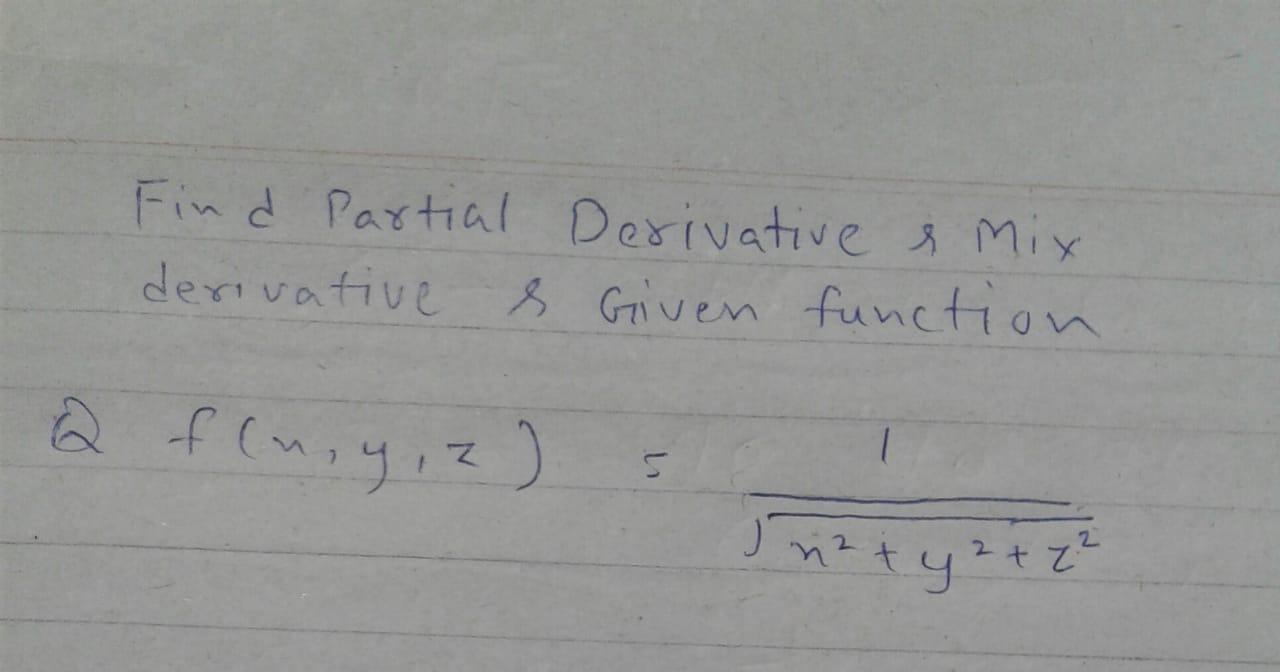 Find Partial Derivative & Mix
derivative & Given function
Q f(x, y, z) = 1/√x²+y²+z²